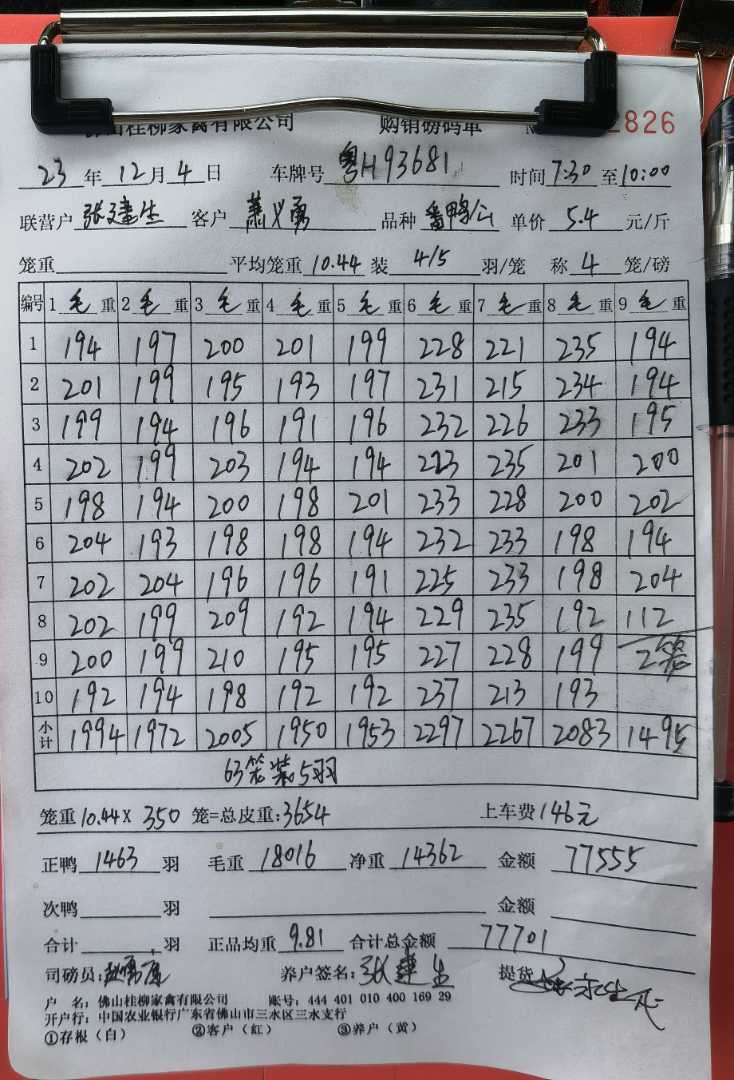 佛山桂柳家禽有限公司 购销磅码单 2826
23 年 12 月 4 日 车牌号 粤H93681 时间 7:30 至 10:00
联营户 张建生 客户 萧义勇 品种 番鸭公 单价 5.4 元/斤
笼重 平均笼重 10.44 装 4/5 羽/笼 称 4 笼/磅
编号 1 毛 重 2 毛 重 3 毛 重 4 毛 重 5 毛 重 6 毛 重 7 毛 重 8 毛 重 9 毛 重
1 194 197 200 201 199 228 221 235 194
2 201 199 195 193 197 231 215 234 194
3 199 194 196 191 196 232 226 233 195
4 202 199 203 194 194 223 235 201 200
5 198 194 200 198 201 233 228 200 202
6 204 193 198 198 194 232 233 198 194
7 202 204 196 196 191 225 233 198 204
8 202 199 209 192 194 229 235 192 112
9 200 199 210 195 195 227 228 199 2笼
10 192 194 198 192 192 237 213 193
小计 1994 1972 2005 1950 1953 2297 2267 2083 1495
63笼装5羽
笼重 10.44 X 350 笼=总皮重:3654 上车费 146元
正鸭 1463 羽 毛重 18016 净重 14362 金额 77555
次鸭 羽 金额
合计 羽 正品均重 9.81 合计总金额 77701
司磅员: 养户签名: 张建生 提货
户 名: 佛山桂柳家禽有限公司 账号: 444 401 010 400 169 29
开户行: 中国农业银行广东省佛山市三水区三水支行
①存根（白） ②客户（红） ③养户（黄）